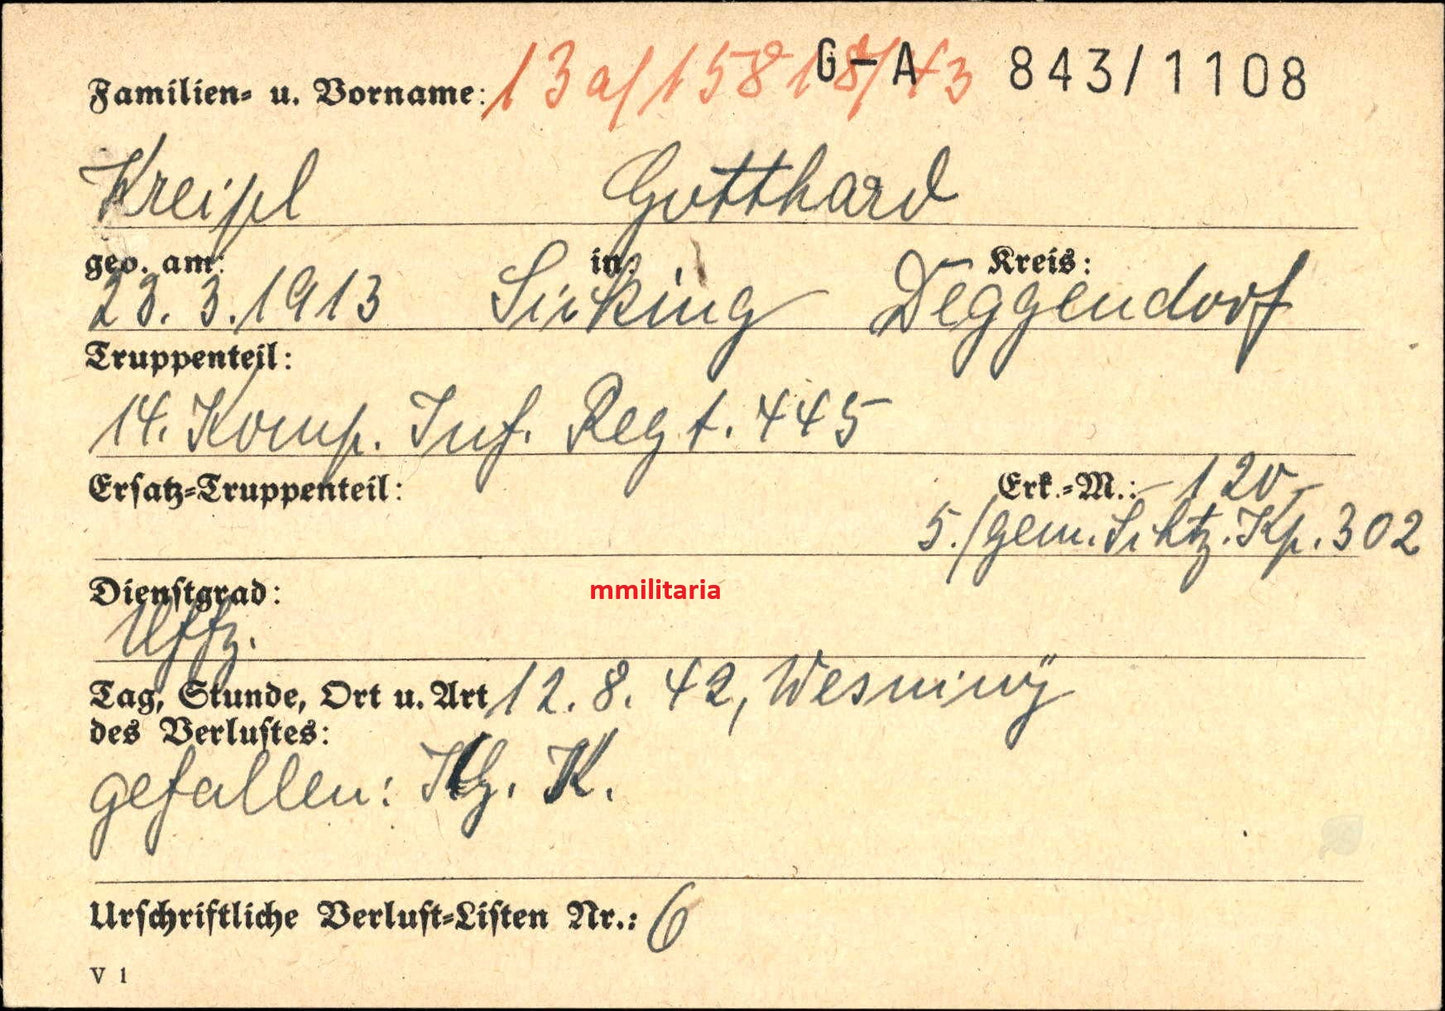 G-A 843/1108
Familien- u. Vorname: 13a/15818/43
Kreipl Gotthard
geb. am: in: Kreis:
23. 3. 1913 Deggendorf
Truppenteil:
14. Komp. Inf. Regt. 445
Ersatz-Truppenteil: Erk.-M.: -120-
5./gem. Kp. 302
Dienstgrad:
Uffz.
mmilitaria
Tag, Stunde, Ort u. Art 12. 8. 42, Wesniny
des Verlustes:
gefallen: K.
Urschriftliche Verlust-Listen Nr.: 6
V 1